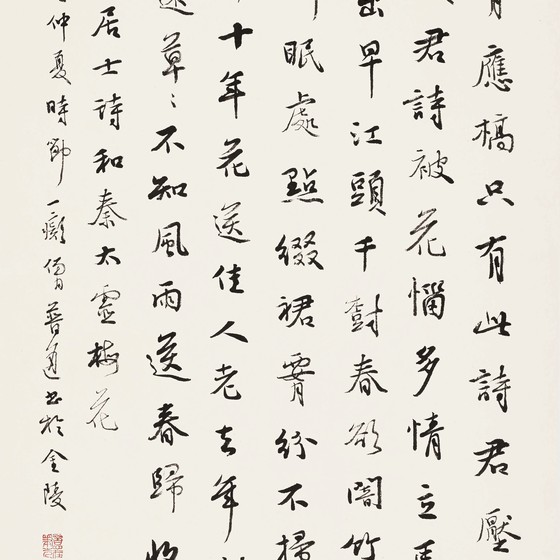 應槁只有此詩君壓
君詩被花惱多情立馬
出早江頭千樹春欲闇竹
眠處點綴裙腰紛不掃
十年花送佳人老去年
草〻不知風雨送春歸
居士詩和秦太虛梅花
仲夏時節一普通書於金陵